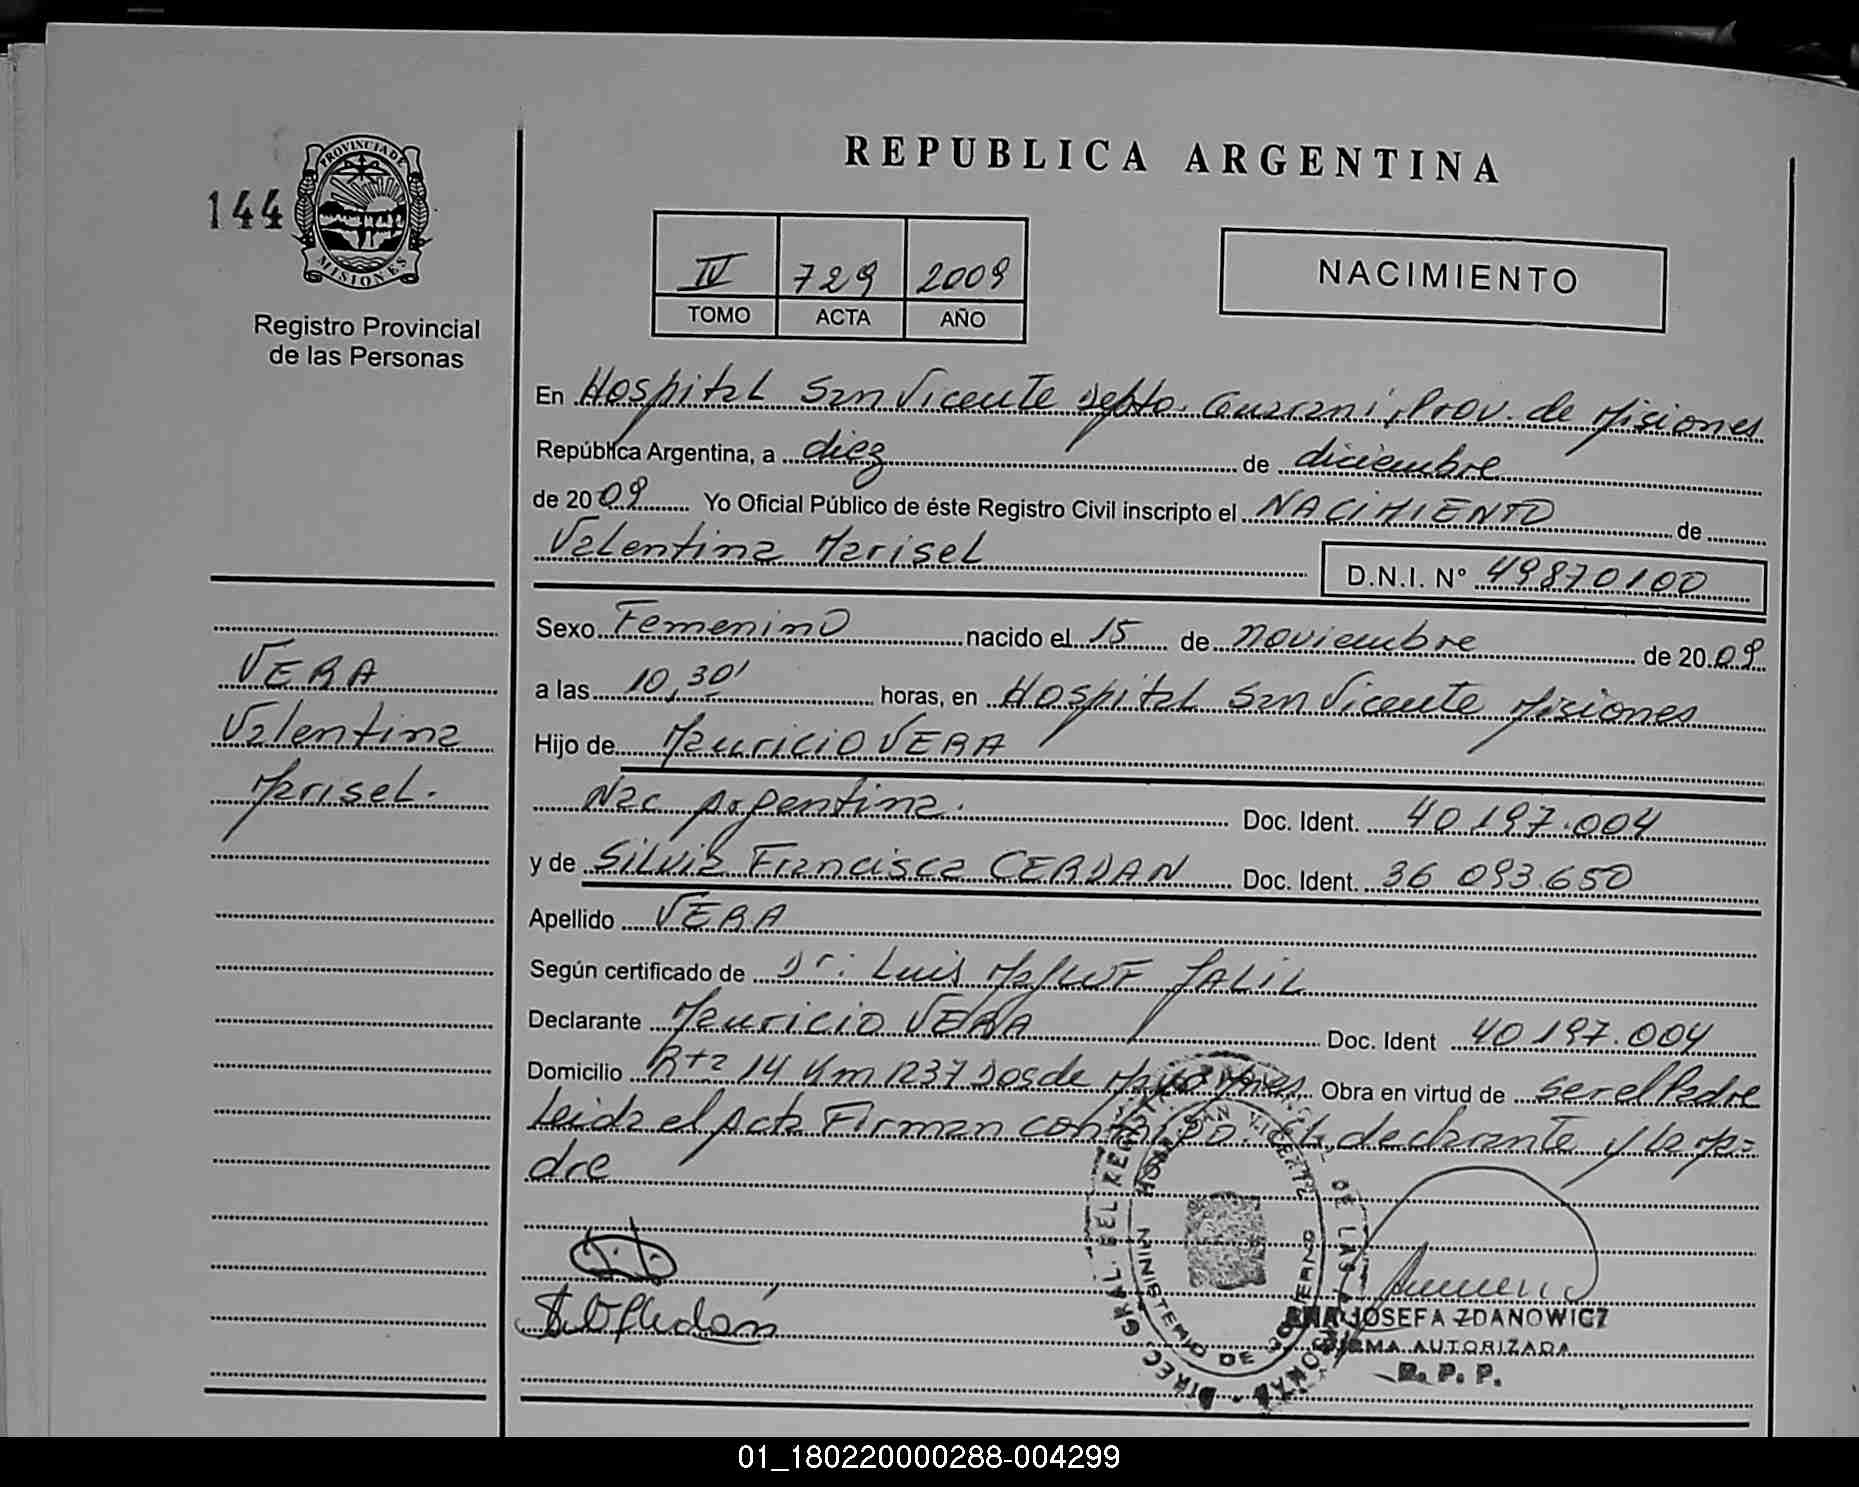 REPUBLICA ARGENTINA
144
PROVINCIA DE
MISIONES
Registro Provincial
de las Personas
IV 729 2009
TOMO ACTA AÑO
NACIMIENTO
En Hospital San Vicente Depto. Guarani, Prov. de Misiones
República Argentina, a diez de diciembre
de 2009 Yo Oficial Público de éste Registro Civil inscripto el NACIMIENTO de
Valentina Marisel D.N.I. N° 49870100
Sexo Femenino nacido el 15 de noviembre de 2009
a las 10,30' horas, en Hospital San Vicente Misiones
Hijo de Mauricio VERA
Nac Argentina. Doc. Ident. 40197.004
y de Silvia Francisca CERDAN Doc. Ident. 36 093.650
Apellido VERA
Según certificado de Dr: Luis JALIL
Declarante Mauricio VERA Doc. Ident 40197.004
Domicilio Rta 14 Km 1237 Dos de Mayo Mnes. Obra en virtud de ser el Padre
Leida el Acta Firman conmigo. El declarante y la Ma=
dre
VERA
Valentina
Marisel.
DIREC. GRAL. DEL REGISTRO DE LAS PERSONAS
MINISTERIO DE GOBIERNO
HOSP. SAN VICENTE
ANA JOSEFA ZDANOWICZ
FIRMA AUTORIZADA
R. P. P.
01_180220000288-004299